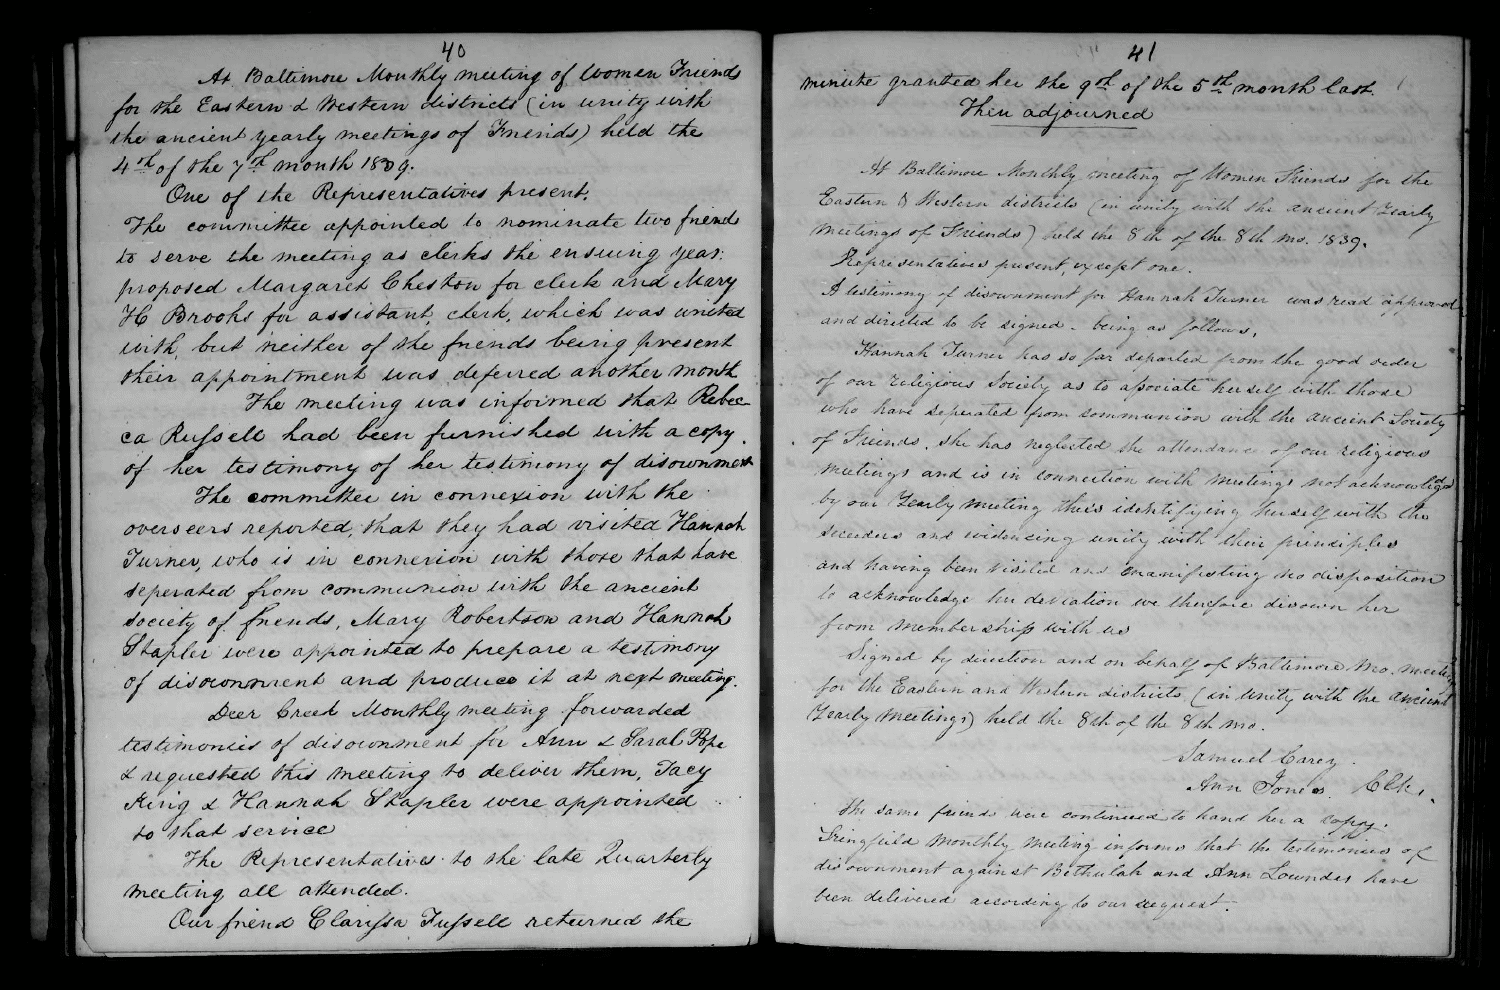 40
At Baltimore Monthly meeting of Women Friends
for the Eastern & Western districts (in unity with
the ancient yearly meetings of Friends) held the
4th of the 7th month 1839.
One of the Representatives present.
The committee appointed to nominate two friends
to serve the meeting as clerks the ensuing year:
proposed Margaret Cheston for clerk and Mary
H Brooks for assistant clerk, which was united
with, but neither of the friends being present
their appointment was deferred another month
The meeting was informed that Rebec-
ca Russell had been furnished with a copy
of her testimony of her testimony of disownment
The committee in connexion with the
overseers reported, that they had visited Hannah
Turner, who is in connexion with those that have
seperated from communion with the ancient
society of friends, Mary Robertson and Hannah
Stapler were appointed to prepare a testimony
of disownment and produce it at next meeting.
Deer Creek Monthly meeting forwarded
testimonies of disownment for Ann & Sarah Pope
& requested this meeting to deliver them, Tacy
King & Hannah Stapler were appointed
to that service
The Representatives to the late Quarterly
meeting all attended.
Our friend Clarissa Fussell returned the
41
minute granted her the 9th of the 5th month last
Then adjourned
At Baltimore Monthly meeting of Women Friends for the
Eastern & Western districts (in unity with the ancient Yearly
Meetings of Friends) held the 8th of the 8th mo. 1839.
Representatives present, except one.
A testimony of disownment for Hannah Turner was read approved
and directed to be signed - being as follows,
Hannah Turner has so far departed from the good order
of our religious Society as to associate herself with those
who have seperated from communion with the ancient Society
of Friends, she has neglected the attendance of our religious
meetings and is in connection with meetings not acknowledged
by our Yearly meeting thus identifying herself with the
seceders and evidencing unity with their principles
and having been visited and manifesting no disposition
to acknowledge her deviation we therefore disown her
from membership with us
Signed by direction and on behalf of Baltimore Mo. meeting
for the Eastern and Western districts, (in unity with the ancient
Yearly Meetings) held the 8th of the 8th mo.
Samuel Carey.
Ann Jones. Clks.
The same friends were continued to hand her a copy.
Springfield Monthly Meeting informs that the testimonies of
disownment against Bethulah and Ann Lowndes have
been delivered according to our request.